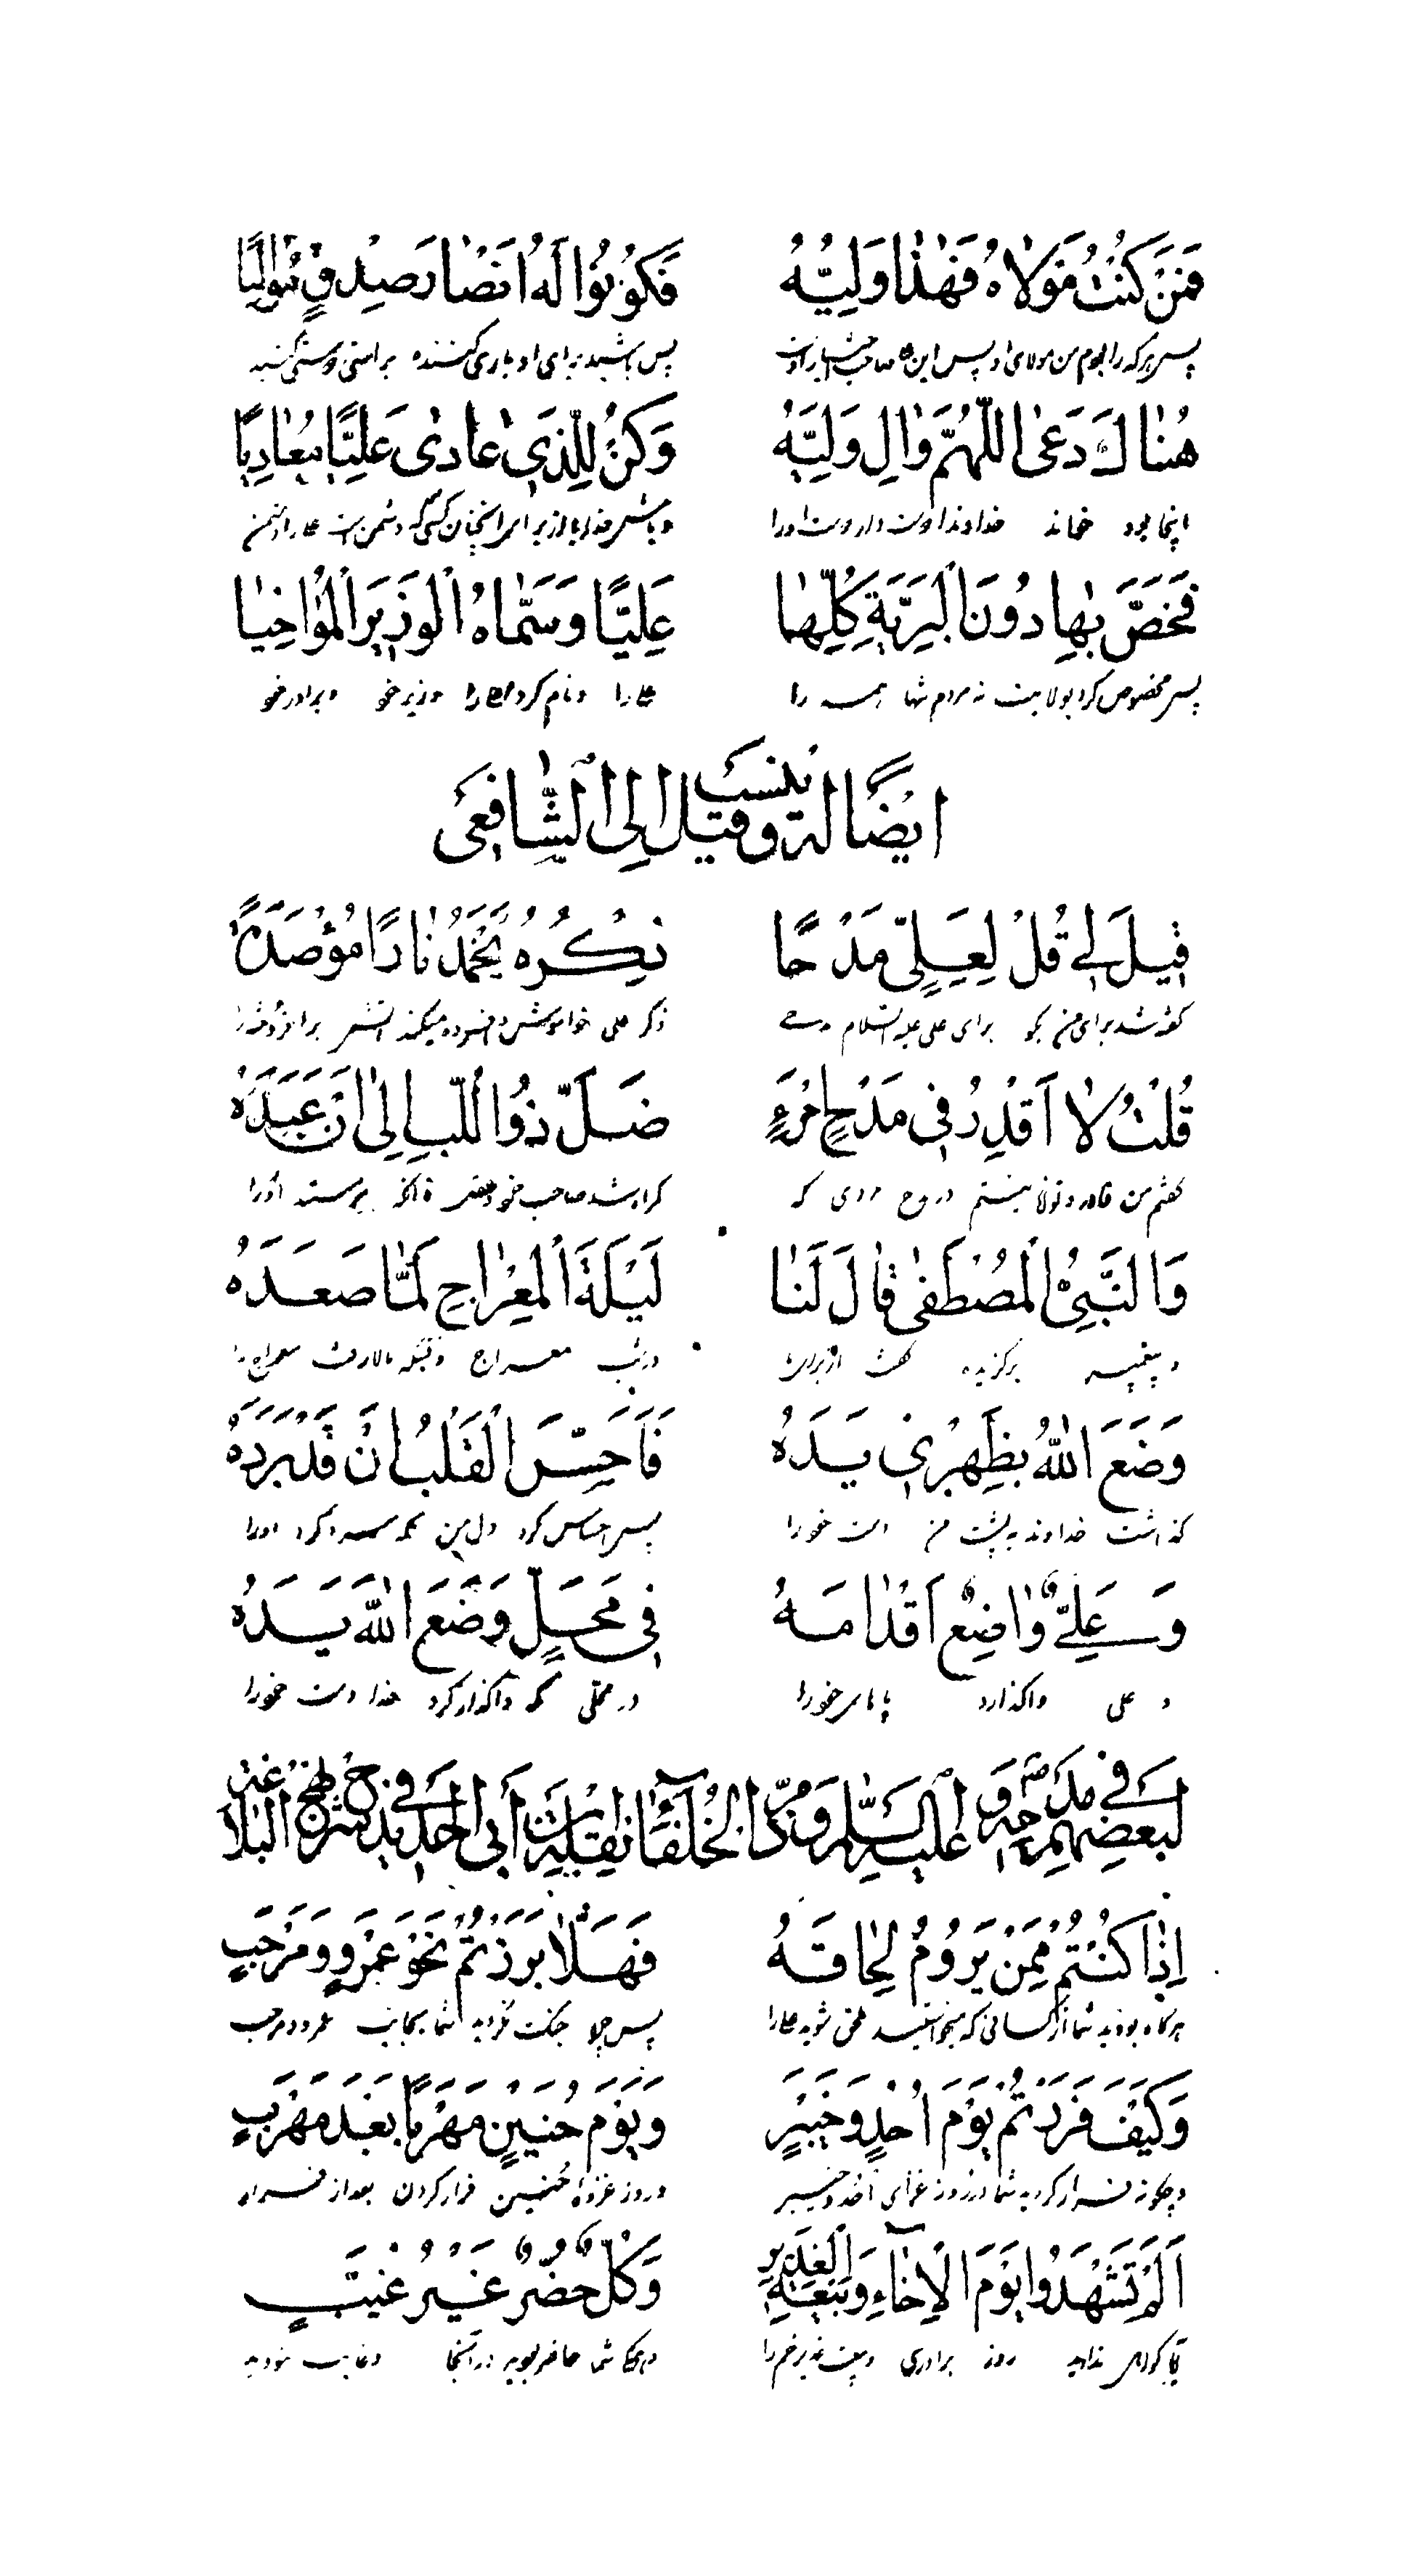 فَمَنْ كُنْتُ مَوْلاٰهُ فَهٰذٰا وَلِیُّهُ فَکُوْنُوْا لَهُ اَنْصٰارَ صِدْقٍ مُوٰالِیًا
پس هرکه را بودم من مولای او پس این پس باشید برای او یاری کننده براستی
هُنٰاكَ دَعیٰ اللّٰهُمَّ وٰالِ وَلِیَّهُ وَکُنْ لِلَّذِی عٰادیٰ عَلِیًّا مُعٰادِیًا
اینجا بود خداوندا دوست دار دوست او را
فَخَصَّ بِهٰا دُونَ الْبَرِیَّةِ کُلِّهٰا عَلِیًّا وَسَمّٰاهُ الْوَزِیرَ الْمُؤٰاخِیٰا
پس مخصوص کرد بولایت نه مردم تنها همه را و نام کرد وزیر خود و برادر خود
ایضًا لَهُ وَقیلَ یُنْسَبُ اِلیَ الشّٰافِعی
قٖیلَ لٖی قُلْ لِعَلِیٍّ مَدْحًا ذِکْرُهُ یُخْمِدُ نٰارًا مُؤْصَدَةً
گفته شد برای من بگو برای علی علیه السلام مدحی ذکر علی خاموش و افسرده میکند آتش برافروخته را
قُلْتُ لاٰ اَقْدِرُ فی مَدْحِ امْرِءٍ ضَلَّ ذُو اللُّبِّ اِلیٰ اَنْ عَبَدَهُ
گفتم من قادر و توانا نیستم در مدح مردی که گمراه شد صاحب خرد تا آنکه پرستید او را
وَالنَّبِیُّ الْمُصْطَفیٰ قٰالَ لَنٰا لَیْلَةَ الْمِعْرٰاجِ لَمّٰا صَعَدَهُ
و پیغمبر برگزیده گفت از برای ما در شب معراج وقتیکه بالا رفت معراج را
وَضَعَ اللّٰهُ بِظَهْرٖی یَدَهُ فَاَحَسَّ الْقَلْبُ اَنْ قَدْ بَرَدَهُ
گذاشت خداوند به پشت من دست خود را پس احساس کرد دل من که سرد کرد او را
وَعَلِیٌّ وٰاضِعٌ اَقْدٰامَهُ فی مَحَلٍّ وَضَعَ اللّٰهُ یَدَهُ
و علی واگذارد پاهای خود را در محلی که واگذار کرد خدا دست خود را
لِبَعْضِهِمْ فی مَدْحِهِ عَلَیْهِ السَّلٰامُ الْخُلَفٰاءِ اَبی الْحَدید فی شَرْحِ نَهْجِ الْبَلاٰ
اِذٰا کُنْتُمُ مِمَّنْ یَرُومُ لِحٰاقَهُ فَهَلاّٰ بَرَزْتُمْ نَحْوَ عَمْرٍو وَمَرْحَبٍ
هرگاه بودید شما از کسانی که میخواستید ملحق شوید پس چرا جنگ نکردید شما بجانب عمرو و مرحب
وَکَیْفَ فَرَرْتُمْ یَوْمَ اُحْدٍ وَخَیْبَرٍ وَیَوْمَ حُنَیْنٍ مَهْرَبًا بَعْدَ مَهْرَبٍ
و چگونه فرار کردید شما در روز احد و خیبر و روز غزوهٔ حنین فرار کردن بعد از فرار
اَلَمْ تَشْهَدُوا یَوْمَ الْاِخٰاءِ وَبَیْعَةَ الْغَدیرِ وَکُلٌّ حُضَّرٌ غَیْرُ غُیَّبٍ
روز برادری و بیعت غدیر خم را شما حاضر بودید در آنجا و غایب نبودید